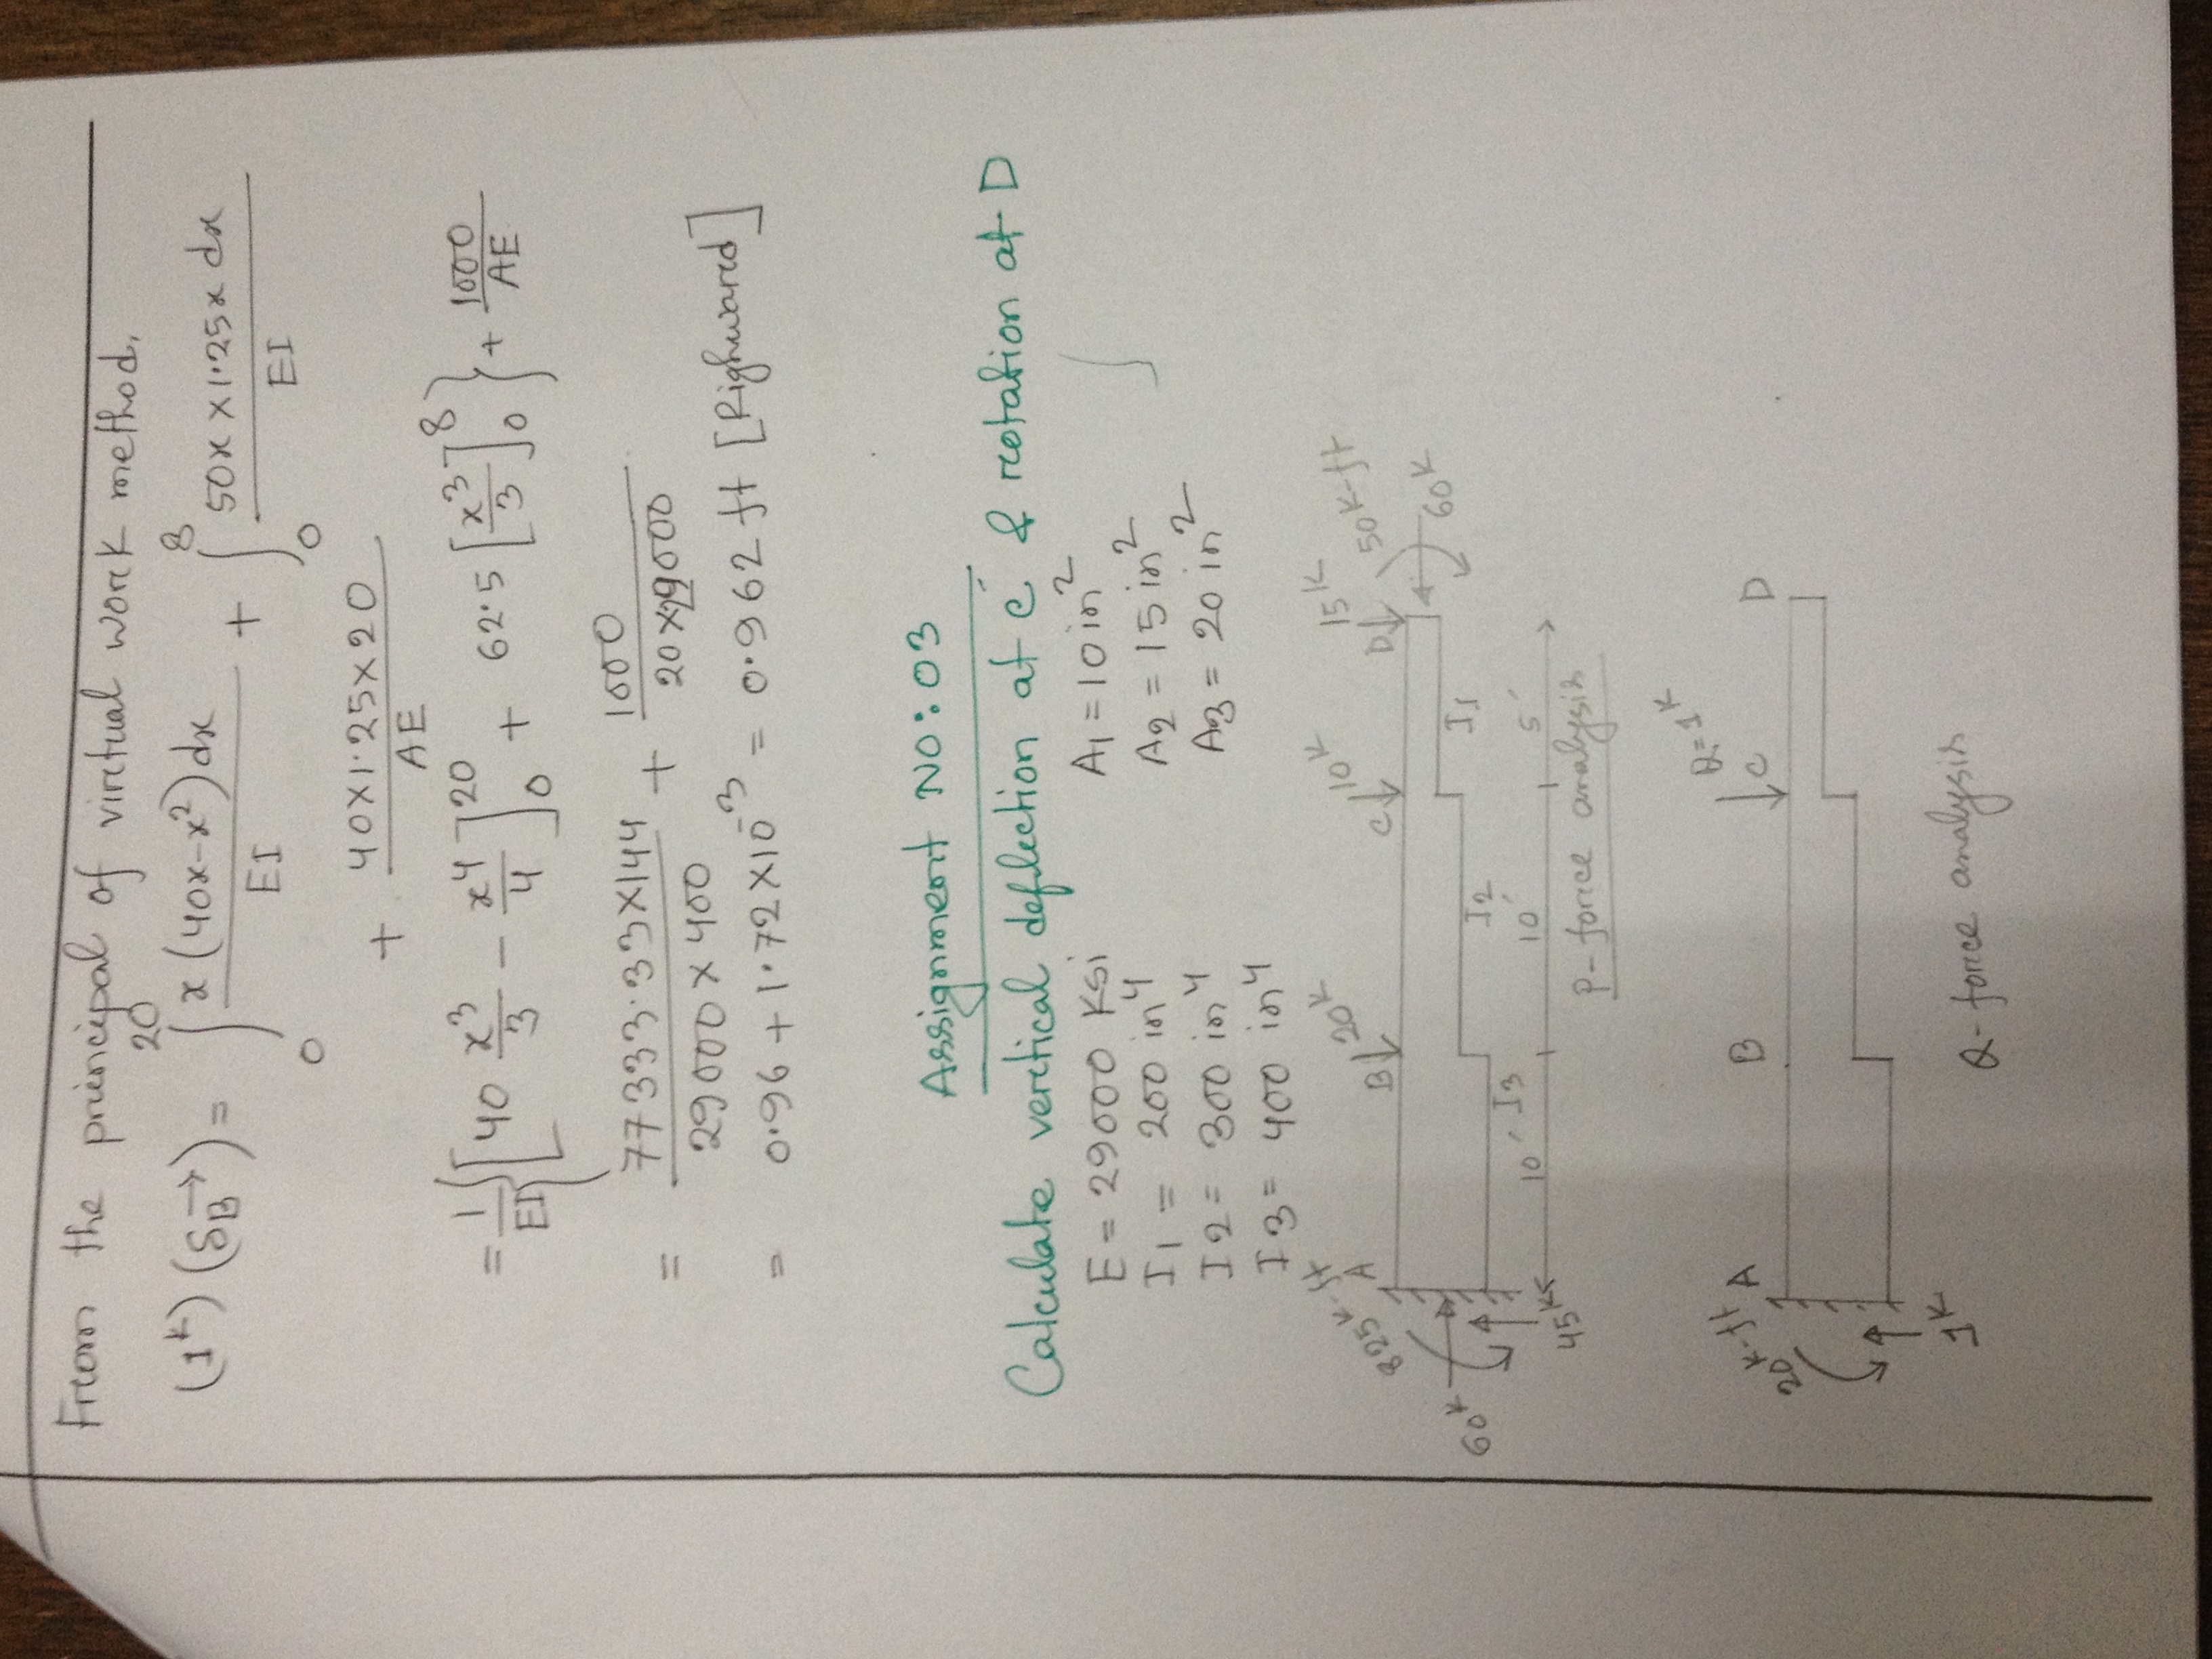 From the principal of virtual work method,
(1ᴷ)(δB→) = ∫₀²⁰ x(40x-x²)dx / EI + ∫₀⁸ 50x×1.25x dx / EI
+ 40×1.25×20 / AE
= 1/EI {[40 x³/3 - x⁴/4]₀²⁰ + 62.5 [x³/3]₀⁸} + 1000/AE
= 77333.33×144 / 29000×400 + 1000 / 20×29000
= 0.96 + 1.72×10⁻³ = 0.962 ft [Righward]
Assignment No: 03
Calculate vertical deflection at c & rotation at D
E = 29000 Ksi
I1 = 200 in⁴ A1 = 10 in²
I2 = 300 in⁴ A2 = 15 in²
I3 = 400 in⁴ A3 = 20 in²
825 K-ft A B 20ᴷ C 10ᴷ D 15ᴷ 50K-ft
60ᴷ 60ᴷ
45ᴷ I3 I2 I1
10′ 10′ 5′
P-force analysis
Q=1ᴷ
20 K-ft A B C D
1ᴷ
Q-force analysis